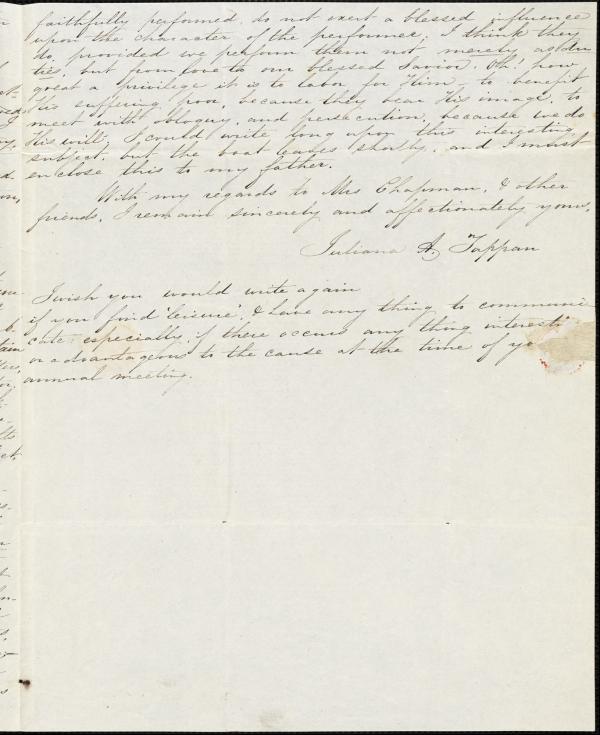 faithfully performed do not exert a blessed influence
upon the character of the performer; I think they
do, provided we perform them not merely as du
ties, but from love to our blessed Savior. Oh! how
great a privilege it is to labor for Him, to benefit
his suffering poor, because they bear His image, to
meet with obloquy, and persecution, because we do
His will; I could write long upon this interesting
subject, but the boat leaves shortly, and I must
enclose this to my father.
With my regards to Mrs Chapman, & other
friends, I remain sincerely and affectionately yours,
Juliana A. Tappan
I wish you would write again
if you find leisure, & have any thing to communi-
cate, especially if there occurs any thing interesti
or advantageous to the cause at the time of yo
annual meeting.